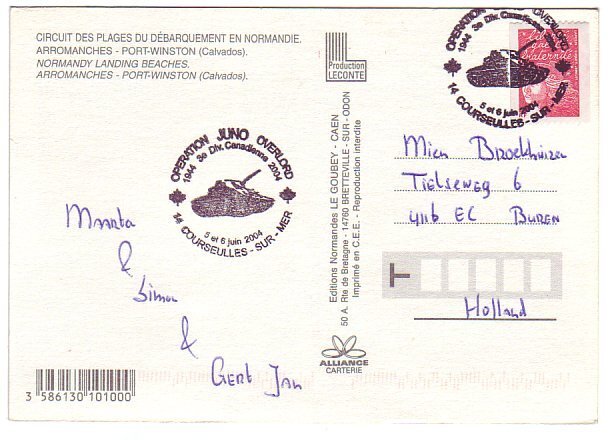 CIRCUIT DES PLAGES DU DÉBARQUEMENT EN NORMANDIE.
ARROMANCHES - PORT-WINSTON (Calvados).
NORMANDY LANDING BEACHES.
ARROMANCHES - PORT-WINSTON (Calvados).
Production
LECONTE
OPERATION JUNO OVERLORD
1944 3e Div. Canadienne 2004
5 et 6 juin 2004
14 COURSEULLES - SUR - MER
OPERATION JUNO OVERLORD
1944 3e Div. Canadienne 2004
5 et 6 juin 2004
14 COURSEULLES - SUR - MER -
Maarta
&
Simon
&
Gert Jan
Editions Normandes LE GOUBEY - CAEN
50 A. Rte de Bretagne - 14760 BRETTEVILLE - SUR - ODON
Imprimé en C.E.E. - Reproduction interdite
Mien Broekhuizen
Tielseweg 6
4116 EC BUREN
T
Holland
ALLIANCE
CARTERIE
3 586130 101000